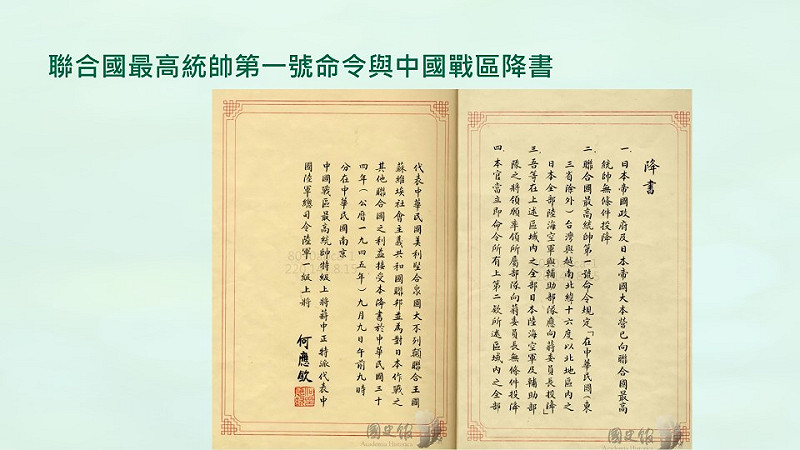 聯合國最高統帥第一號命令與中國戰區降書
降書
一. 日本帝國政府及日本帝國大本營已向聯合國最高
統帥無條件投降
二. 聯合國最高統帥第一號命令規定「在中華民國(東
三省除外)台灣與越南北緯十六度以北地區內之
日本全部陸海空軍與輔助部隊應向蔣委員長投降」
三. 吾等在上述區域內之全部日本陸海空軍及輔助部
隊之將領願率領所屬部隊向蔣委員長無條件投降
四. 本官當立即命令所有上第二款所述區域內之全部
代表中華民國美利堅合眾國大不列顛聯合王國
蘇維埃社會主義共和國聯邦並為對日本作戰之
其他聯合國之利益接受本降書於中華民國三十
四年(公曆一九四五年)九月九日午前九時
分在中華民國南京
中國戰區最高統帥特級上將蔣中正特派代表中
國陸軍總司令陸軍一級上將
何應欽
國史館
Academia Historica
國史館
Academia Historica